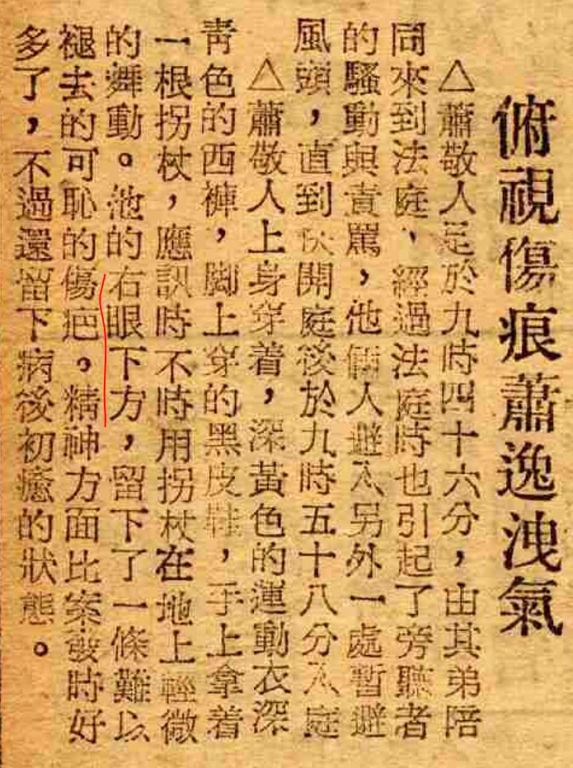 俯視傷痕蕭逸洩氣
△蕭敬人是於九時四十六分，由其弟陪
同來到法庭，經過法庭時也引起了旁聽者
的騷動與責罵，他倆人避入另外一處暫避
風頭，直到伙開庭後於九時五十八分入庭
△蕭敬人上身穿着，深黃色的運動衣深
靑色的西褲，脚上穿的黑皮鞋，手上拿着
一根拐杖，應訊時不時用拐杖在地上輕微
的舞動。他的右眼下方，留下了一條難以
褪去的可恥的傷疤。精神方面比案發時好
多了，不過還留下病後初癒的狀態。